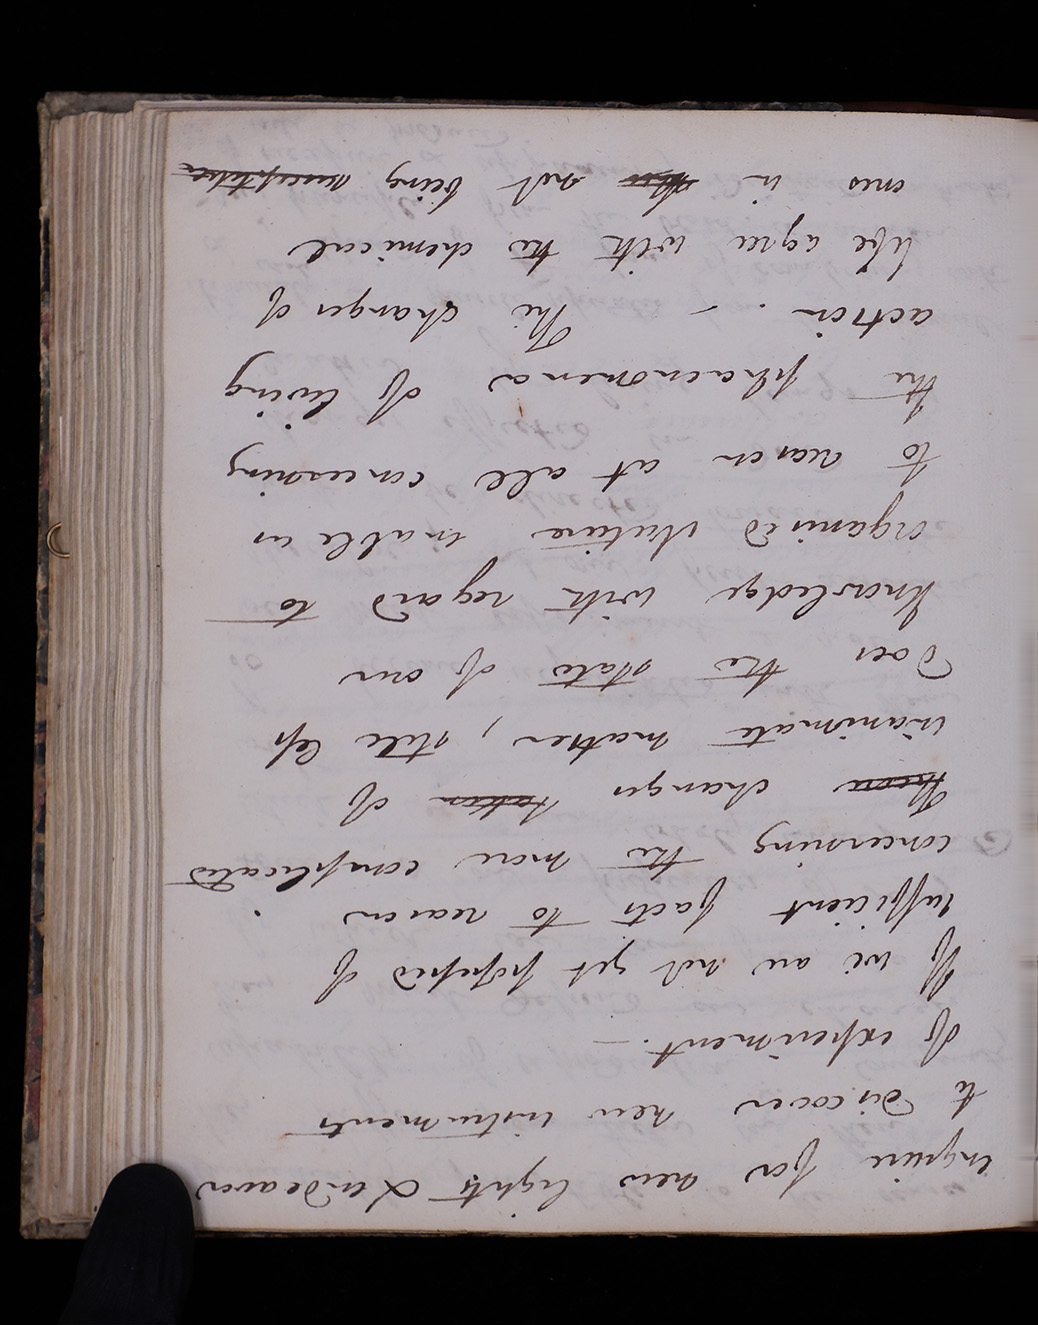 inquire for new lights & endeavor
to discover new instruments
of experiment. —
If we are not yet possessed of
sufficient facts to reason
concerning the more complicated
changes of
inanimate matter, still less
does the state of our
knowledge with regard to
organised Nature enable us
to reason at all concerning
the phaenomena of living
action. — The changes of
life agree with the chemical
ones in not being susceptible